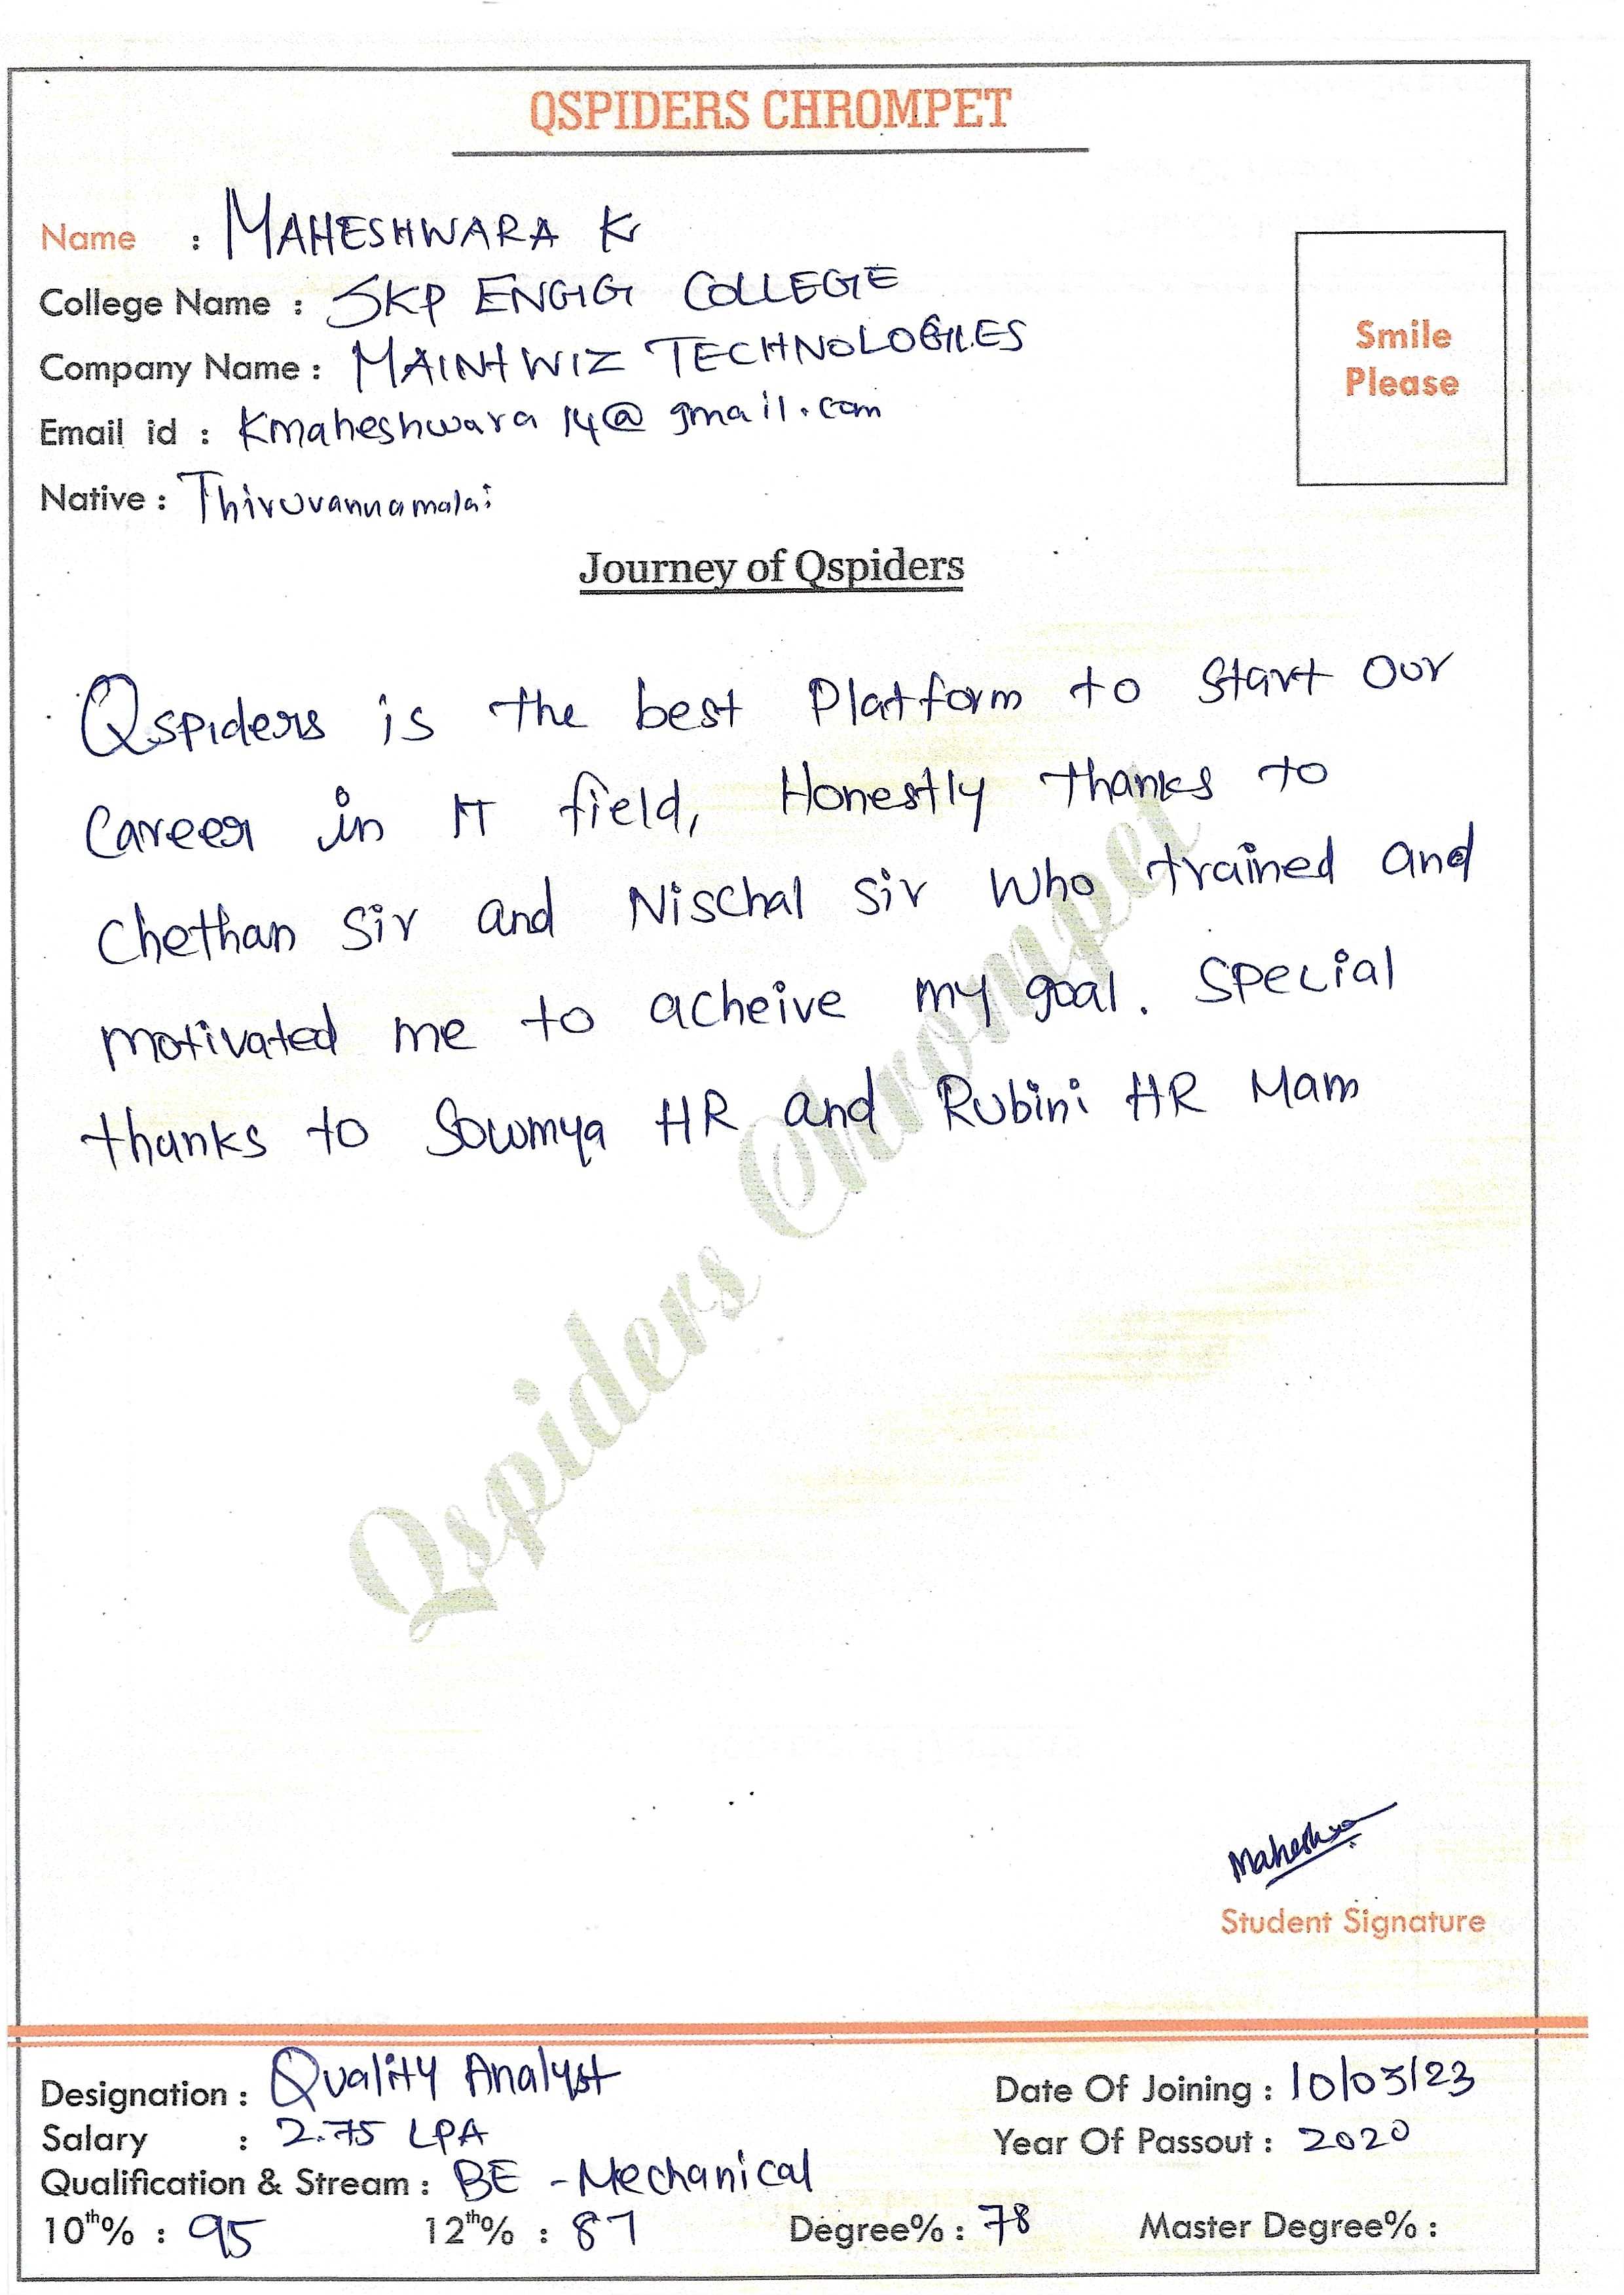 QSPIDERS CHROMPET
Name : MAHESHWARA K
College Name : SKP ENGG COLLEGE
Company Name : MAINTWIZ TECHNOLOGIES
Email id : Kmaheshwara14@gmail.com
Native : Thiruvannamalai
Smile
Please
Journey of Qspiders
Qspiders is the best Platform to Start Our
Career in IT field, Honestly thanks to
Chethan Sir and Nischal Sir Who trained and
motivated me to acheive my goal. Special
thanks to Sowmya HR and Rubini HR Mam
Qspiders Chrompet
Maheshwa
Student Signature
Designation : Quality Analyst
Date Of Joining : 10/03/23
Salary : 2.75 LPA
Year Of Passout : 2020
Qualification & Stream : BE - Mechanical
10th% : 95 12th% : 87 Degree% : 78 Master Degree% :